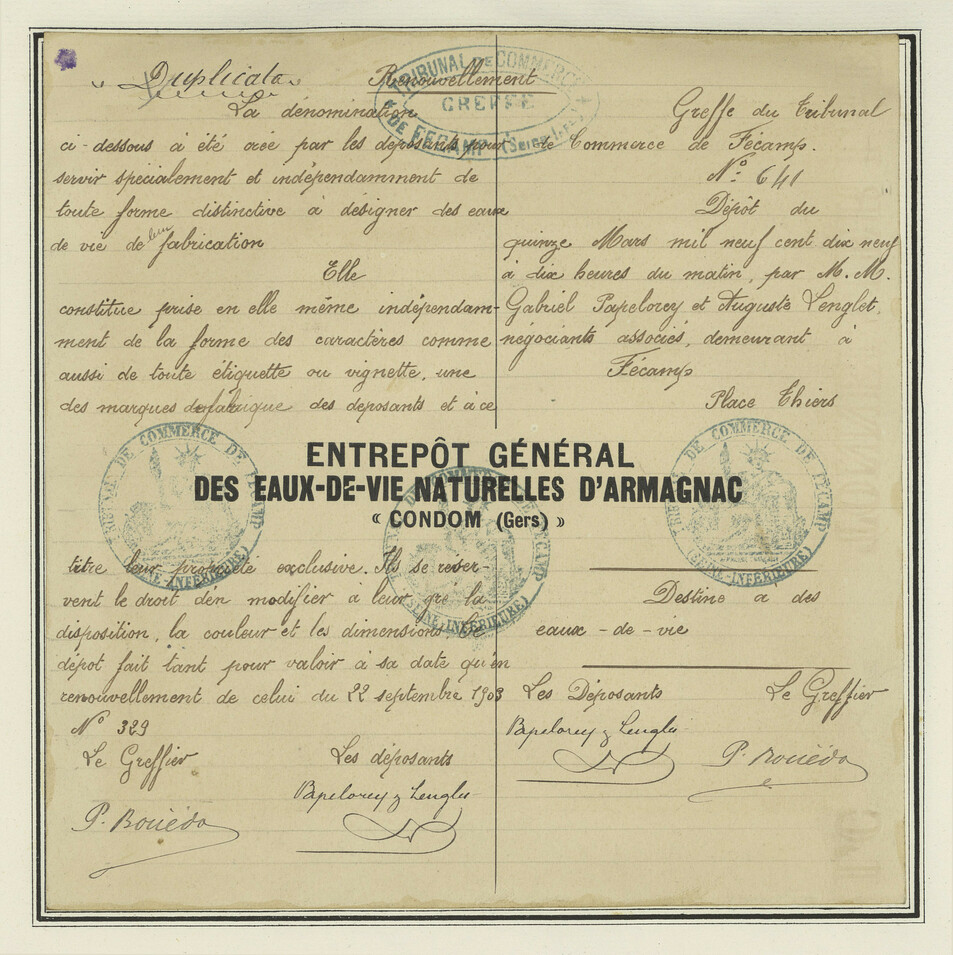 « Duplicata »
Renouvellement
La dénomination
ci-dessous à été créé par les déposants pour
servir spécialement et indépendamment de
toute forme distinctive à désigner des eaux
de vie de leur fabrication
Elle
constitue prise en elle même indépendam-
ment de la forme des caractères comme
aussi de toute étiquette ou vignette, une
des marques de fabrique des déposants et à ce
Greffe du Tribunal
de Commerce de Fécamp.
N° 641
Dépôt du
quinze Mars mil neuf cent dix neuf
à dix heures du matin, par M. M.
Gabriel Papelorey et Auguste Lenglet,
négociants associés, demeurant à
Fécamp
Place Thiers
TRIBUNAL DE COMMERCE
GREFFE
DE FECAMP (Seine Infre)
ENTREPÔT GÉNÉRAL
DES EAUX-DE-VIE NATURELLES D'ARMAGNAC
« CONDOM (Gers) »
TRIBUNAL DE COMMERCE DE FECAMP
(SEINE-INFÉRIEURE)
TRIBUNAL DE COMMERCE DE FECAMP
(SEINE-INFÉRIEURE)
TRIBUNAL DE COMMERCE DE FECAMP
(SEINE-INFÉRIEURE)
titre leur propriété exclusive. Ils se réser-
vent le droit d'en modifier à leur gré la
disposition, la couleur et les dimensions. Le
dépot fait tant pour valoir à sa date qu'en
renouvellement de celui du 22 septembre 1903
N° 329
Le Greffier
Les déposants
Papelorey & Lenglet
P. Bouëdo
Destiné a des
eaux-de-vie
Les Déposants
Le Greffier
Papelorey & Lenglet
P. Bouëdo